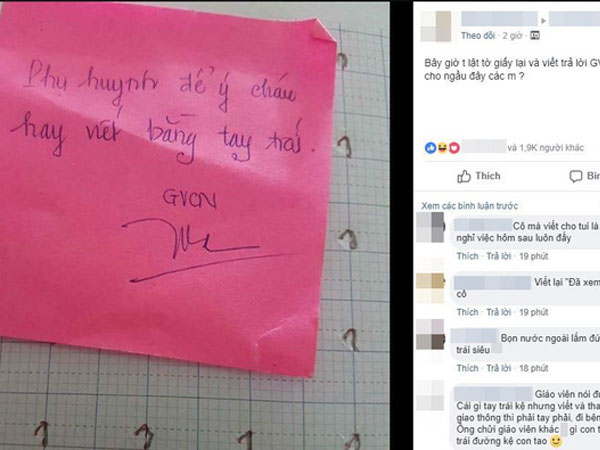 Phụ huynh để ý cháu
hay viết bằng tay trái.
GVCN
Theo dõi · 2 giờ ·
Bây giờ t lật tờ giấy lại và viết trả lời GV
cho ngầu đây các m ?
và 1,9K người khác
Thích
Bìn
Xem các bình luận trước
Cô mà viết cho tui là
nghỉ việc hôm sau luôn đấy
Thích · Trả lời · 19 phút
Viết lại "Đã xem
cô
Thích · Trả lời · 19 phút
Bọn nước ngoài lắm đứ
trái siêu
Thích · Trả lời · 18 phút
Giáo viên nói đú
Cái gì tay trái kệ nhưng viết và tha
giao thông thì phải tay phải, đi bên
Ông chửi giáo viên khác gì con t
trái đường kệ con tao